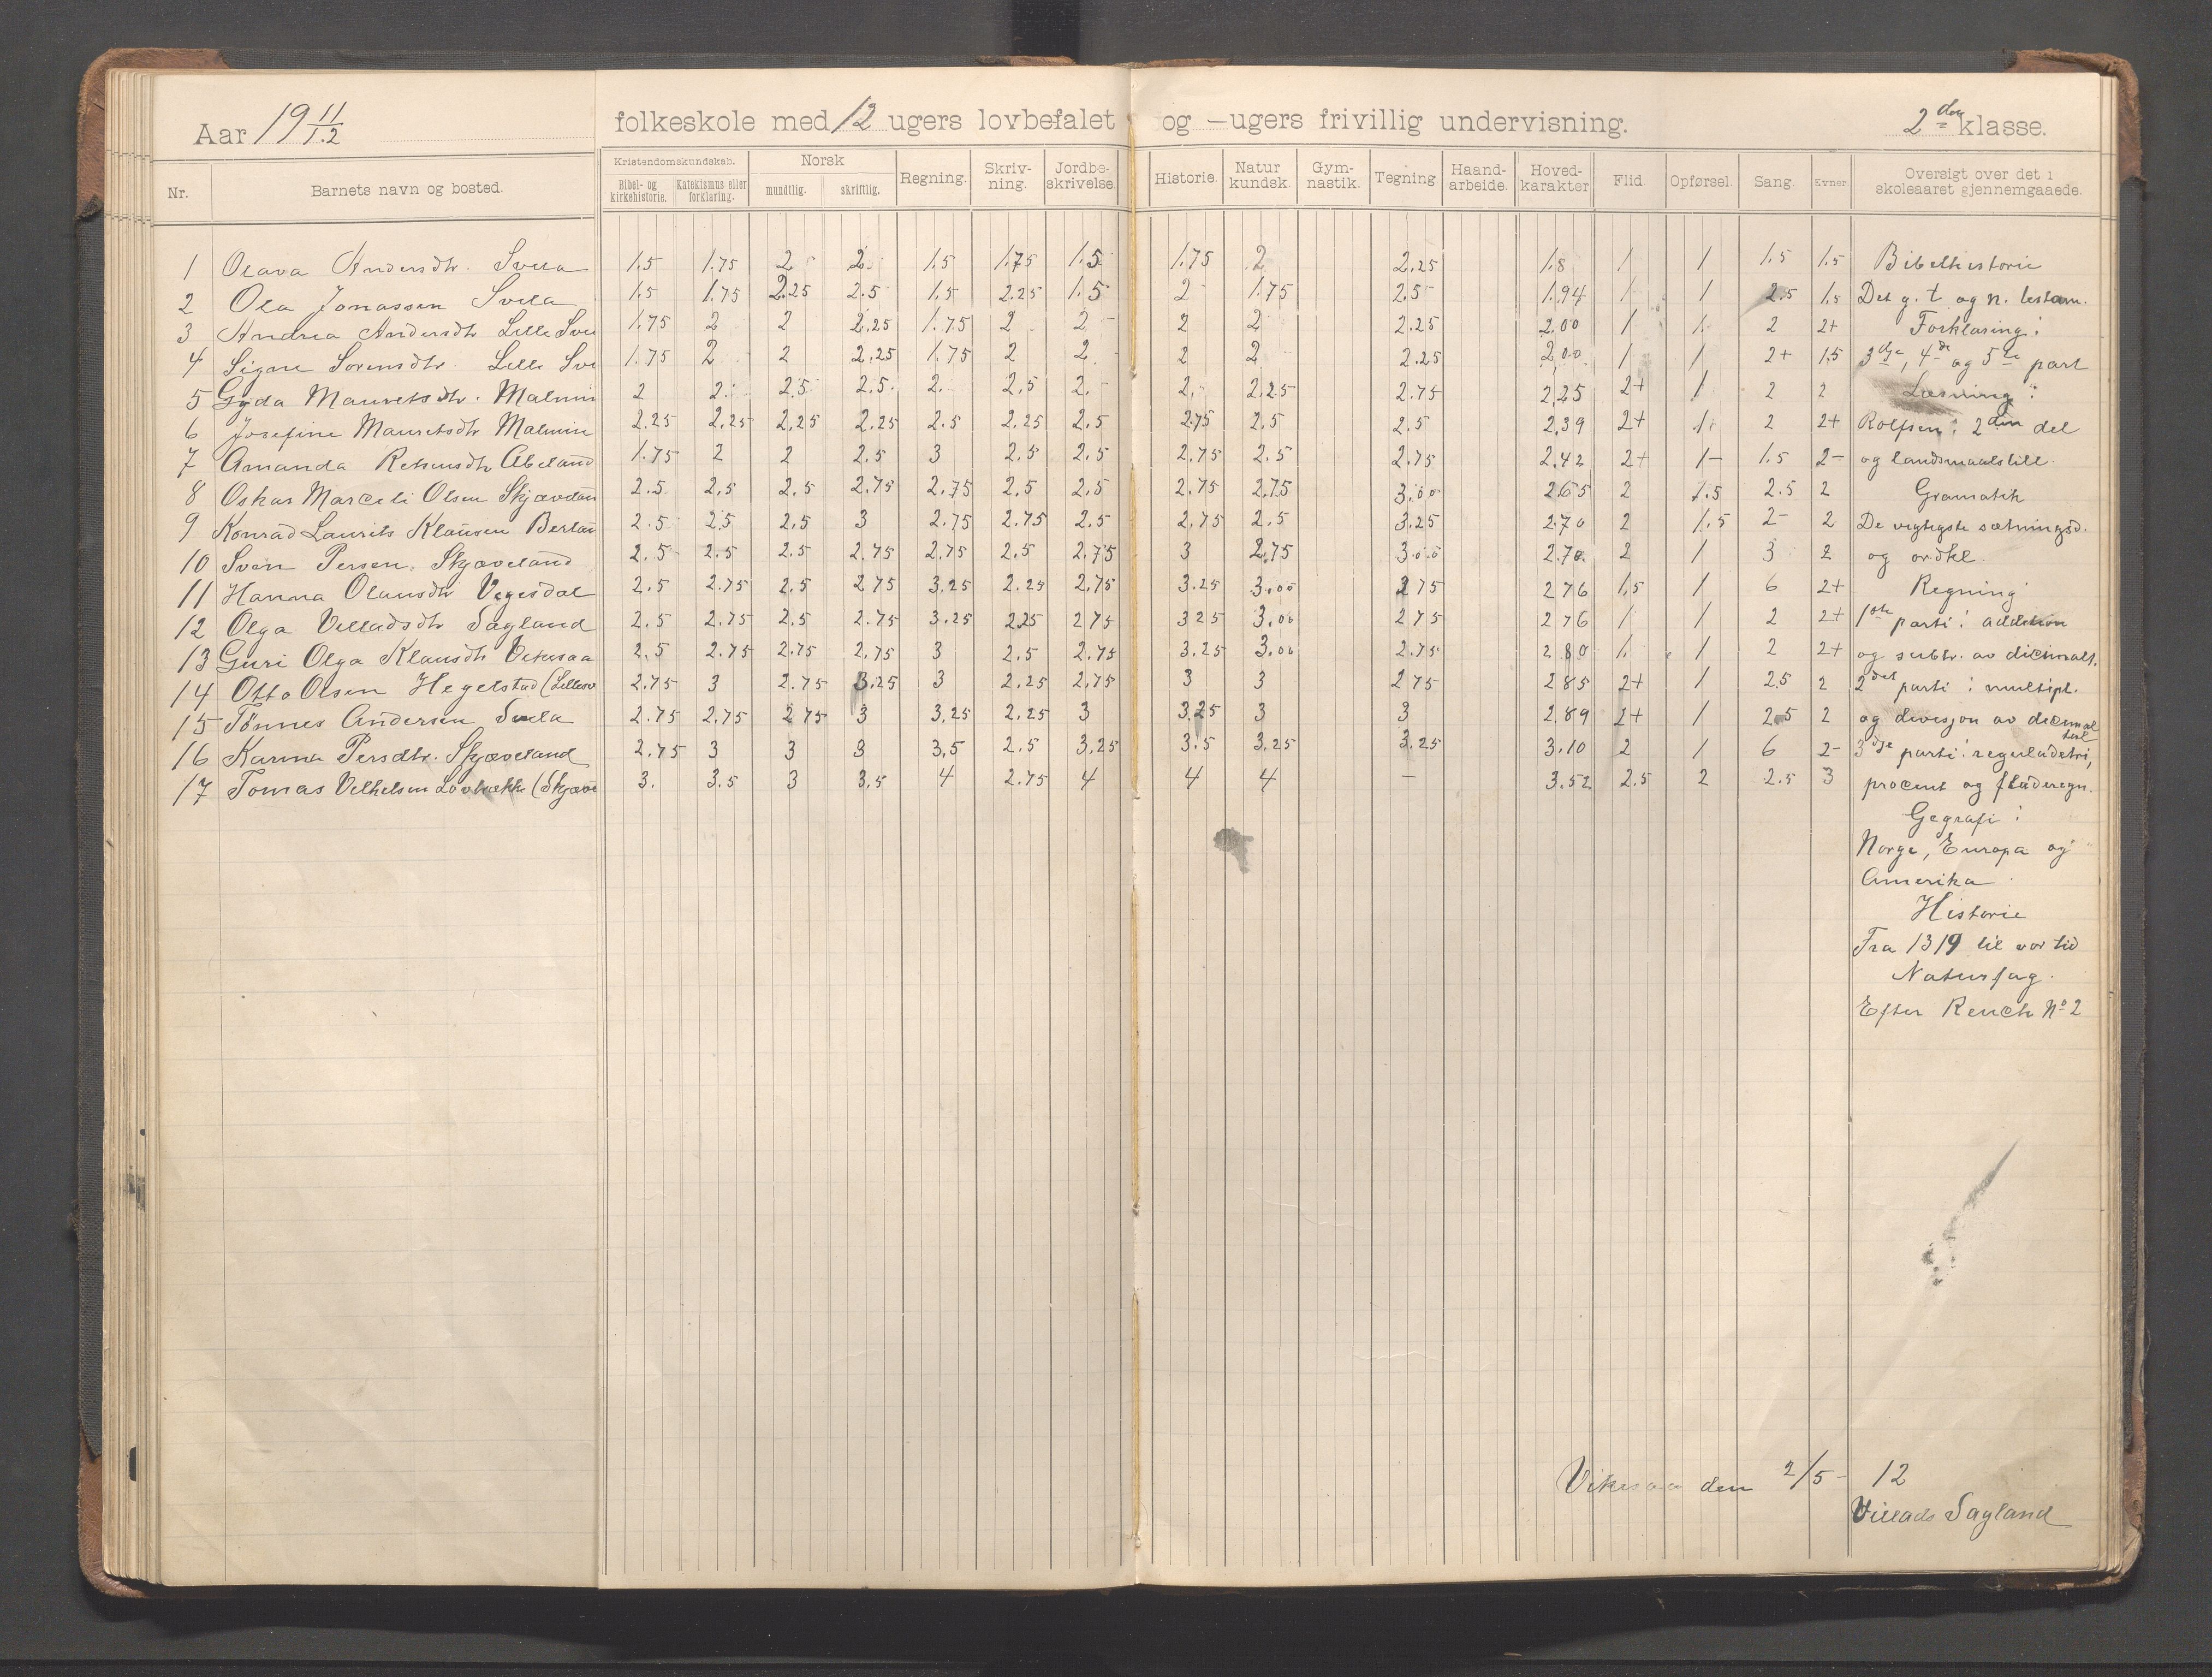 Aar 19 11/12 folkeskole med 12 ugers lovbefalet og — ugers frivillig undervisning. 2den klasse.
Nr. Barnets navn og bosted. Kristendomskundskab. Bibel- og kirkehistorie. Katekismus eller forklaring. Norsk mundtlig. skriftlig. Regning. Skriv-ning. Jordbe-skrivelse. Historie. Natur kundsk. Gym-nastik. Tegning Haand-arbeide. Hoved-karakter Flid. Opførsel. Sang. Evner Oversigt over det i skoleaaret gjennemgaaede.
1 Olava Andersdtr. Svela 1.5 1.75 2 2 1.5 1.75 1.5 1.75 2 2.25 1.8 1 1 1.5 1.5 Bibelhistorie
2 Ola Jonassen Svela 1.5 1.75 2.25 2.5 1.5 2.25 1.5 2 1.75 2.5 1.94 1 1 2.5 1.5 Det g. t. og n. testam.
3 Andrea Andersdtr Lille Sve 1.75 2 2 2.25 1.75 2 2 2 2 2.25 2.00 1 1 2 2+ Forklaring:
4 Signe Sorensdtr. Lille Sve 1.75 2 2 2.25 1.75 2 2 2 2 2.25 2.00 1 1 2+ 1.5 3dje, 4de og 5te part
5 Gyda Mauritsdtr. Malmin 2 2 2.5 2.5 2 2.5 2 2 2.25 2.75 2.25 2+ 1 2 2 Læsning:
6 Josefine Mauritsdtr Malmin 2.25 2.25 2.25 2.25 2.5 2.25 2.5 2.75 2.5 2.5 2.39 2+ 1 2 2+ Rolfsen: 2den del
7 Amanda Abeland 1.75 2 2 2.5 3 2.5 2.5 2.75 2.5 2.75 2.42 2+ 1- 1.5 2- og landsmaalstill.
8 Oskar Marceli Olsen Skjævelan 2.5 2.5 2.5 2.75 2.75 2.5 2.5 2.75 2.75 3.00 2.65 2 1.5 2.5 2 Gramatik
9 Konrad Laurits Klausen 2.5 2.5 2.5 3 2.75 2.75 2.5 2.75 2.5 3.25 2.70 2 1.5 2- 2 De vigtigste sætningsd.
10 Sven Persen. Skjæveland 2.5 2.5 2.5 2.75 2.75 2.5 2.75 3 2.75 3.00 2.70 2 1 3 2 og ordkl.
11 Hanna Olausdtr Vegesdal 2.5 2.75 2.5 2.75 3.25 2.25 2.75 3.25 3.00 2.75 2.76 1.5 1 6 2+ Regning
12 Olga Velladsdtr Sagland 2.5 2.75 2.5 2.75 3.25 2.25 2.75 3.25 3.00 2.75 2.76 1 1 2 2+ 1ste parti: addition
13 Guri Olga Klausdtr Vikesaa 2.5 2.75 2.75 2.75 3 2.5 2.75 3.25 3.00 2.75 2.80 1 1 2 2+ og subtr. av dicimalt.
14 Otto Olsen Hegelstad (Lillesv 2.75 3 2.75 3.25 3 2.25 2.75 3 3 2.75 2.85 2+ 1 2.5 2 2det parti: multipl.
15 Tønnes Andersen Svela 2.75 2.75 2.75 3 3.25 2.25 3 3.25 3 3 2.89 2+ 1 2.5 2 og devisjon av dicimal tal
16 Karina Persdtr. Skjæveland 2.75 3 3 3 3.5 2.5 3.25 3.5 3.25 3.25 3.10 2 1 6 2- 3dje parti: reguladetri,
17 Tomas Velhelsen Lovbrække (Skjæve 3. 3.5 3 3.5 4 2.75 4 4 4 — 3.52 2.5 2 2.5 3 procent og flåderegn.
Gegrafi:
Norge, Europa og
Amerika
Historie
Fra 1319 til vor tid
Naturfag.
Efter No 2
Vikesaa den 2/5 - 12
Villads Sagland